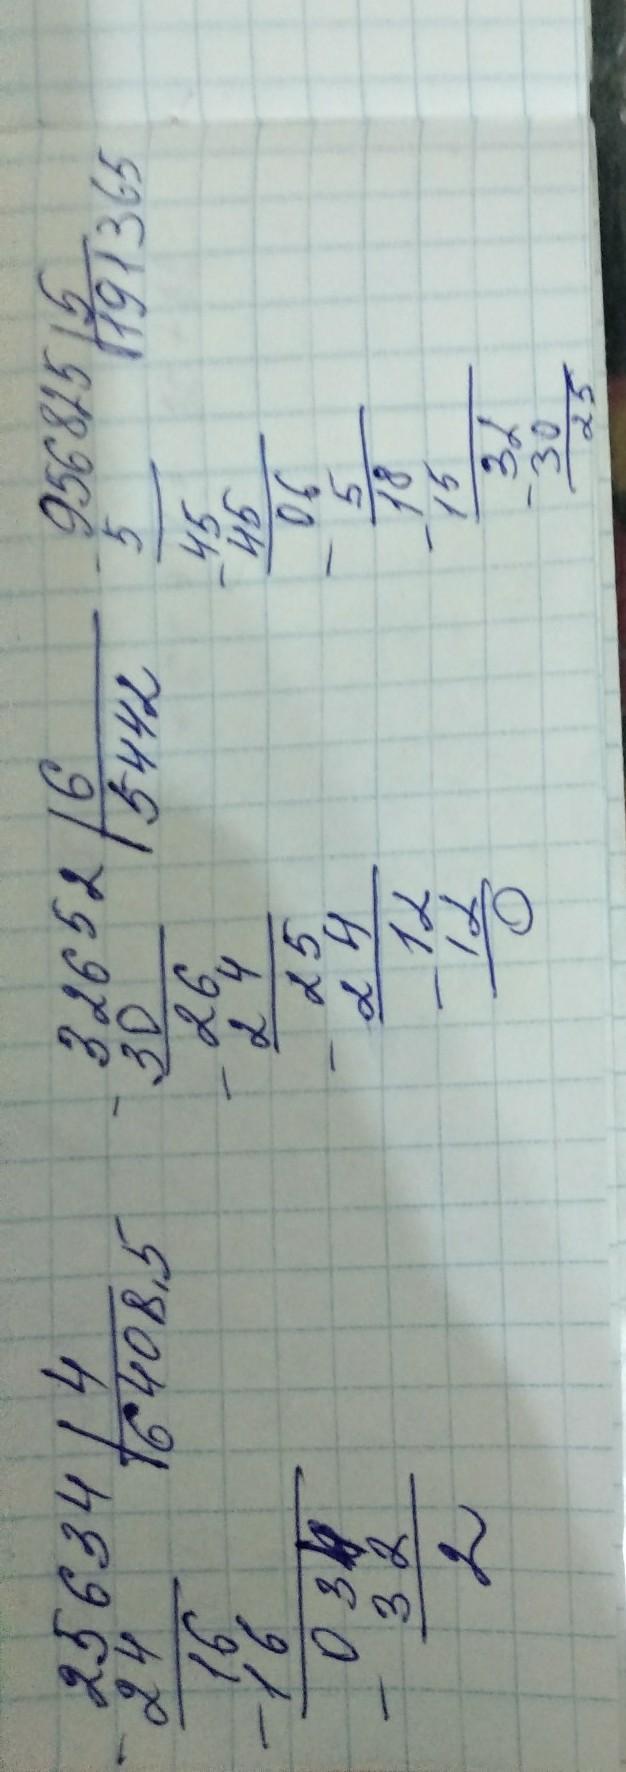 - 25634 | 4
24 | 6408,5
16
- 16
034
- 32
2
- 32652 | 6
30 | 5442
- 26
24
- 25
24
- 12
12
0
- 956825 | 5
5 | 191365
- 45
45
06
- 5
18
- 15
32
- 30
25